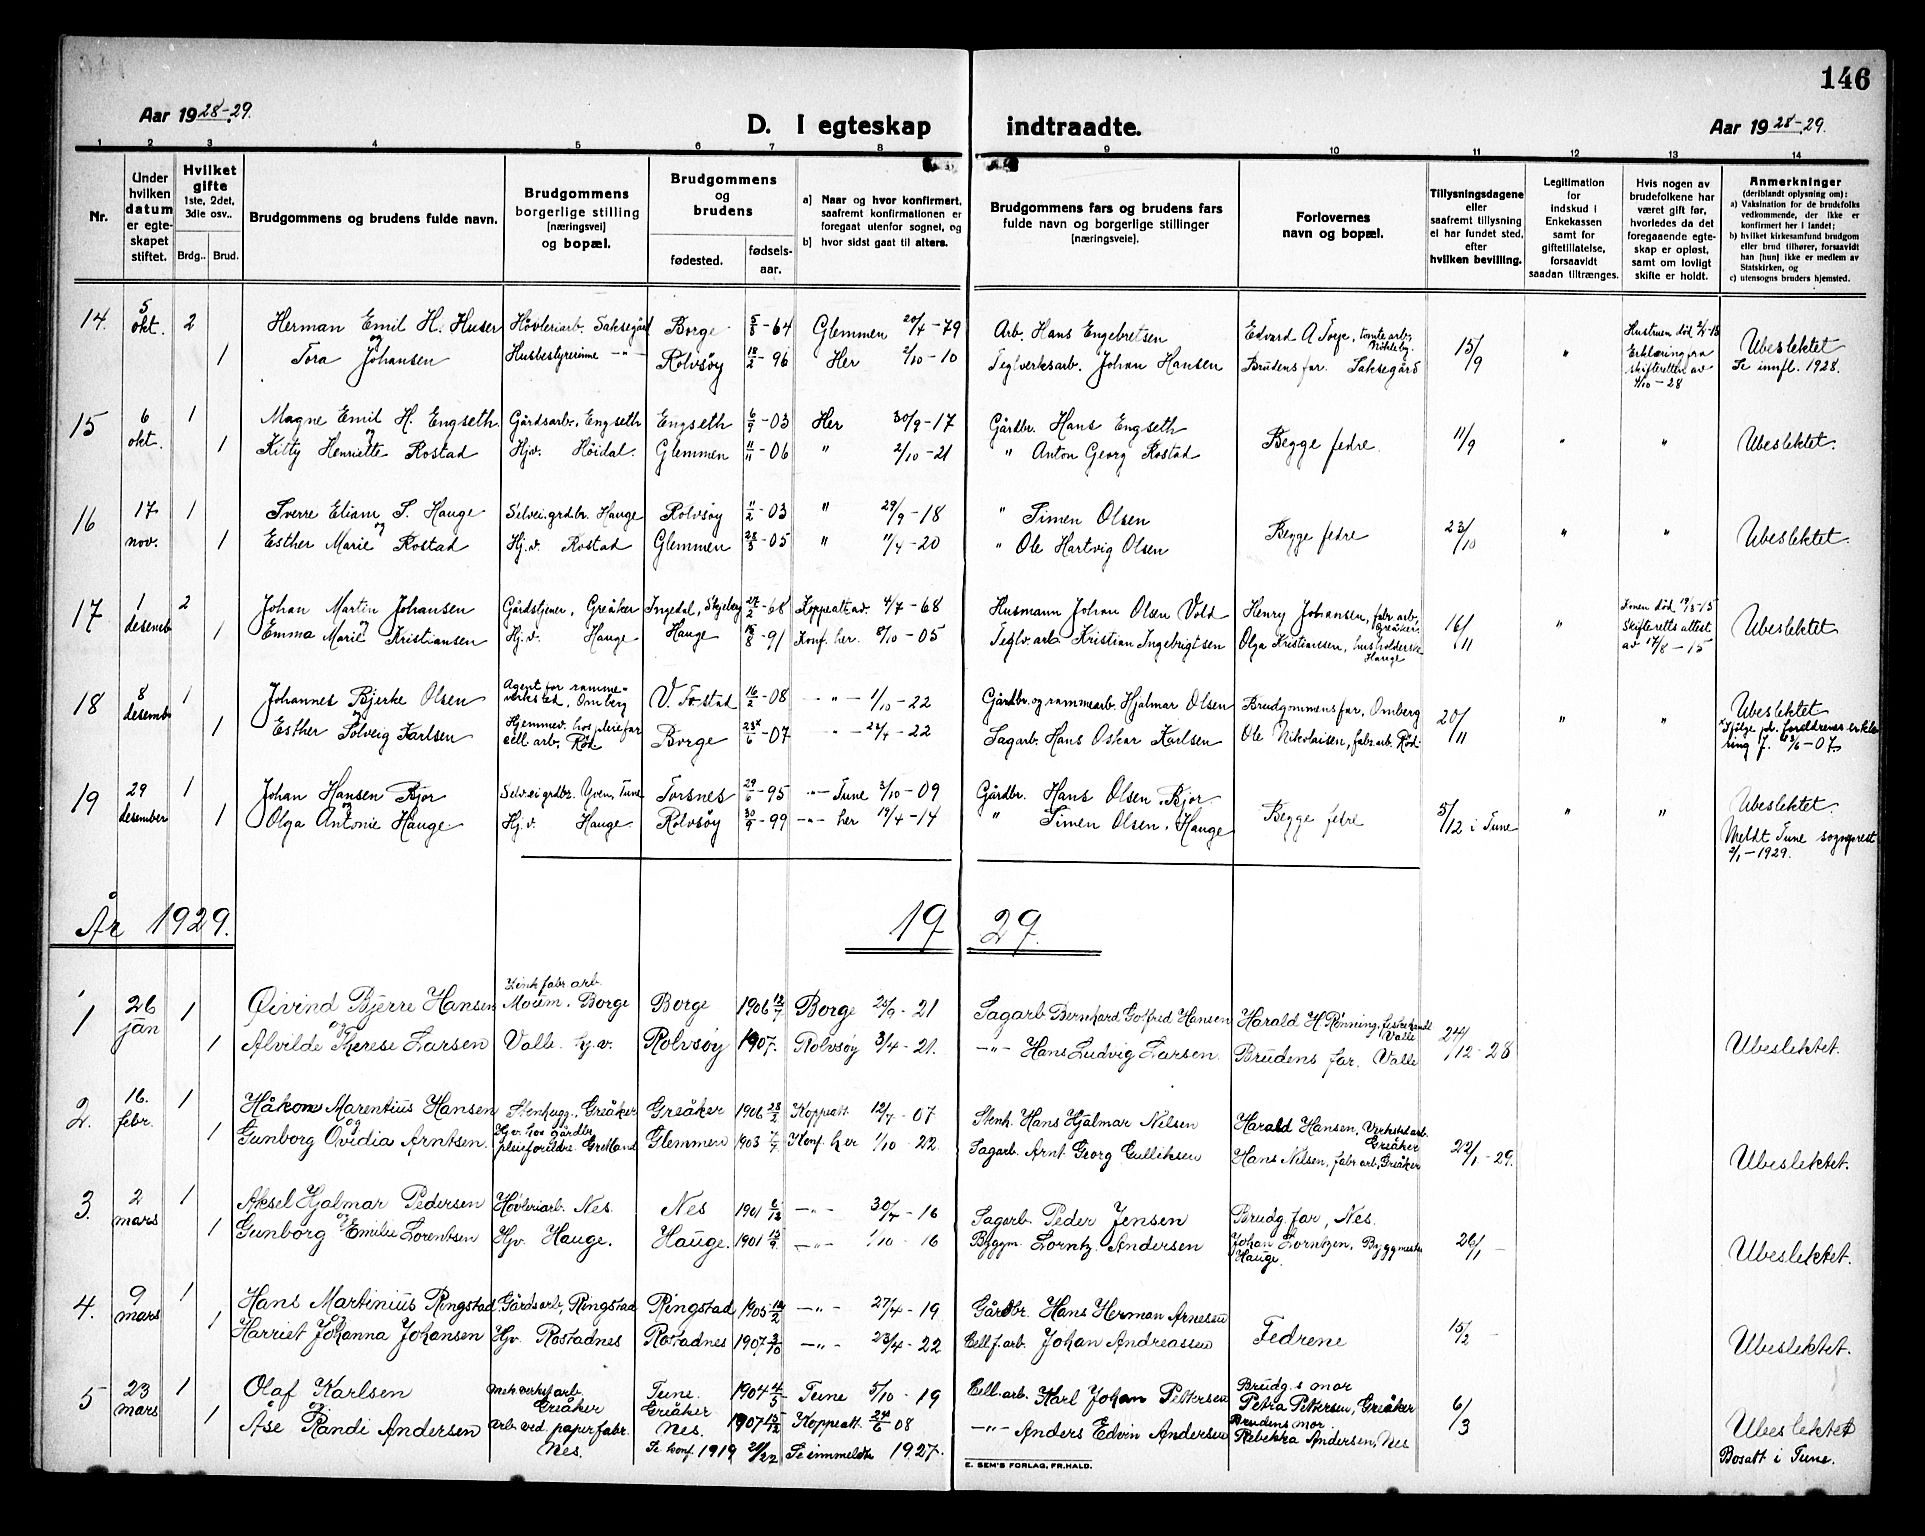 146
Aar 1928-29.
D. I egteskap indtraadte.
Aar 1928-29.
1 2 3 4 5 6 7 8 9 10 11 12 13 14
Nr.
Under hvilken datum er egteskapet stiftet.
Hvilket gifte 1ste, 2det, 3die osv..
Brdg.. Brud.
Brudgommens og brudens fulde navn.
Brudgommens borgerlige stilling (næringsvei) og bopæl.
Brudgommens og brudens
fødested. fødsels-aar.
a) Naar og hvor konfirmert, saafremt konfirmationen er foregaat utenfor sognet, og
b) hvor sidst gaat til alters.
Brudgommens fars og brudens fars fulde navn og borgerlige stillinger (næringsveie).
Forlovernes navn og bopæl.
Tillysningsdagene eller saafremt tillysning ei har fundet sted, efter hvilken bevilling.
Legitimation for indskud i Enkekassen samt for giftetillatelse, forsaavidt saadan tiltrænges.
Hvis nogen av brudefolkene har været gift før, hvorledes da det foregaaende egteskap er opløst, samt om lovligt skifte er holdt.
Anmerkninger
(deriblandt oplysning om):
a) Vaksination for de brudefolks vedkommende, der ikke er konfirmert her i landet;
b) hvilket kirkesamfund brudgom eller brud tilhører, forsaavidt han [hun] ikke er medlem av Statskirken, og
c) utensogns bruders hjemsted.
14. 5 okt. 2 Herman Emil H. Huser Høvleriarb. Saksegård Borge 5/8-64 Glemmen 20/4-79 Arb. Hans Engebretsen Edvard A Toje, tomtearb. Nökleby 15/9 " Hustruen død 2/4-18 Ubeslektet
og 1 Tora Johansen Husbestyrerinne -"- Rolvsøy 18/2-96 Her 2/10-10 Teglverksarb. Johan Hansen Brudens far. Saksegård Erklæring fra skifteretten av 4/10-28 Se innfl. 1928.
15 6 okt. 1 Magne Emil H. Engseth Gårdsarb., Engseth Engseth 6/9-03 Her 30/9-17 Gårdbr. Hans Engseth Begge fedre. 11/9 " " Ubeslektet.
og 1 Kitty Henriette Rostad Hj.v. Höidal. Glemmen 11/11-06 " 2/10-21 " Anton Georg Rostad
16 17 nov. 1 Sverre Eliam S. Hauge Selvei.grdbr. Hauge Rolvsøy 11/2-03 " 29/9-18 " Simen Olsen Begge fedre 23/10 " " Ubeslektet.
og 1 Esther Marie Rostad Hj.v. Rostad Glemmen 28/3-05 " 11/4-20 " Ole Hartvig Olsen
17 1 desemb 2 Johan Martin Johansen Gårdstjener, Greåker Ingedal, Skjeberg 27/2-68 Koppeatt.av. 4/7-68 Husmann Johan Olsen Vold Henry Johansen, fabr.arb, Greåker 16/11 " Konen død 19/5-15 Ubeslektet
og 1 Emma Marie Kristiansen Hj.v. Hauge Hauge 15/8-91 Konf. her 8/10-05 Teglv.arb Kristian Ingebrigtsen Olga Kristiansen, husholderske Hauge Skifteretts attest av 17/8-15
18 8 desemb 1 Johannes Bjerke Olsen Agent for rammeverksted, Omberg V. Fostad 16/2-08 -"- 1/10-22 Gårdbr. og rammearb. Hjalmar Olsen Brudgommens far, Omberg 20/11 " " Ubeslektet
og 1 Esther Solveig Karlsen Hjemmev. hos pleiefar cell.arb. Röd Borge 23x/6-07 -"- 23/4-22 Sagarb. Hans Oskar Karlsen Ole Nikolaisen, fabr.arb. Röd x Ifölge pl. foreldrenes erklæring f. 23/6-07.
19 29 desember 1 Johan Hansen Bjor Selvei grdbr. Yven, Tune Torsnes 29/6-95 -"- Tune 3/10-09 Gårdbr. Hans Olsen Bjor Begge fedre 5/12 i Tune " " Ubeslektet
og 1 Olga Antonie Hauge Hj.v. Hauge Rolvsøy 30/9-99 -"- her 19/4-14 " Simen Olsen, Hauge Meldt Tune sogneprest 2/1-1929.
År 1929. 1929.
1 26 jan 1 Øivind Bjerre Hansen Zinkfabr arb. Moum. Borge Borge 1906 12/7 Borge 25/9-21 Sagarb Bernhard Golfred Hansen Harald H. Rønning, Valle 24/12-28
og 1 Alvilde Therese Larsen Valle. hj.v. Rolvsøy 1907. Rolvsøy 3/4-21. -"- Hans Ludvig Larsen Brudens far. Valle Ubeslektet.
2. 16. febr. 1 Håkon Marentius Hansen Stenhugg., Greåker Greåker 1906 28/2 Koppeatt. 12/7-07 Stenh. Hans Hjalmar Nilsen Harald Hansen, Verkstsarb. Greåker
og 1 Gunborg Ovidia Arntsen. Hjv. hos gårdbr. pleieforeldre. Grelland Glemmen 1903 7/7 Konf. her 1/10-22 Sagarb. Arnt Georg Gulliksen Hans Nilsen, fabr arb, Greåker 22/1-29. Ubeslektet.
3. 2 mars 1 Aksel Hjalmar Pedersen Høvleriarb. Nes. Nes 1901 6/12 -"- 30/4-16 Sagarb. Peder Jensen Brudg. far, Nes.
og 1 Gunborg Emilie Lorentsen Hjv. Hauge. Hauge. 1901 13/9. -"- 1/10-16 Byggm. Lorntz. Andersen Johan Lorntzen, Byggmester Hauge. 26/1- Ubeslektet.
4. 9 mars 1 Hans Martinius Ringstad Gårdsarb, Ringstad Ringstad 1905 12/2 -"- 27/4-19 Gårdbr. Hans Herman Arnesen Fedrene 15/2-
1 Harriet Johanna Johansen Hjv Rostadnes Rostadnes 1907 3/10 -"- 23/4-22 Cell.f.arb. Johan Andreassen Ubeslektet.
5 23 mars 1 Olaf Karlsen mek verksf arb Greåker Tune. Greåker 1904 4/5 Tune 5/10-19 Cell.arb. Karl Johan Pettersen Brudg.s mor Petra Pettersen, Greåker 6/3
og 1 Åse Randi Andersen arb. ved papirfabr. Nes. Nes. 1907 15/12 Koppeatt. 24/6 08 -"- Anders Edvin Andersen Brudens mor. Rebekka Andersen, Nes Ubeslektet
Se konf. 1919 Se innmeldte 1927. Bosatt i Tune.
E. SEM'S FORLAG, FR.HALD.